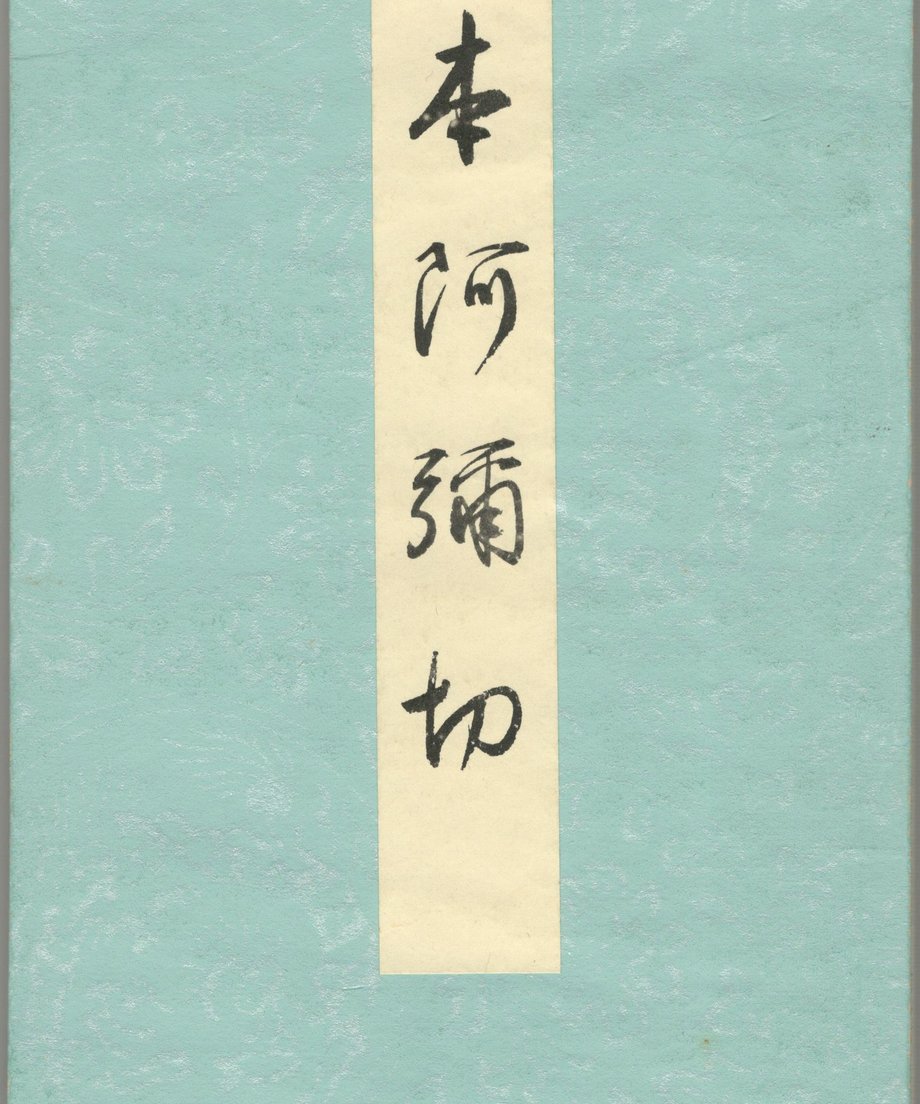 本阿彌切